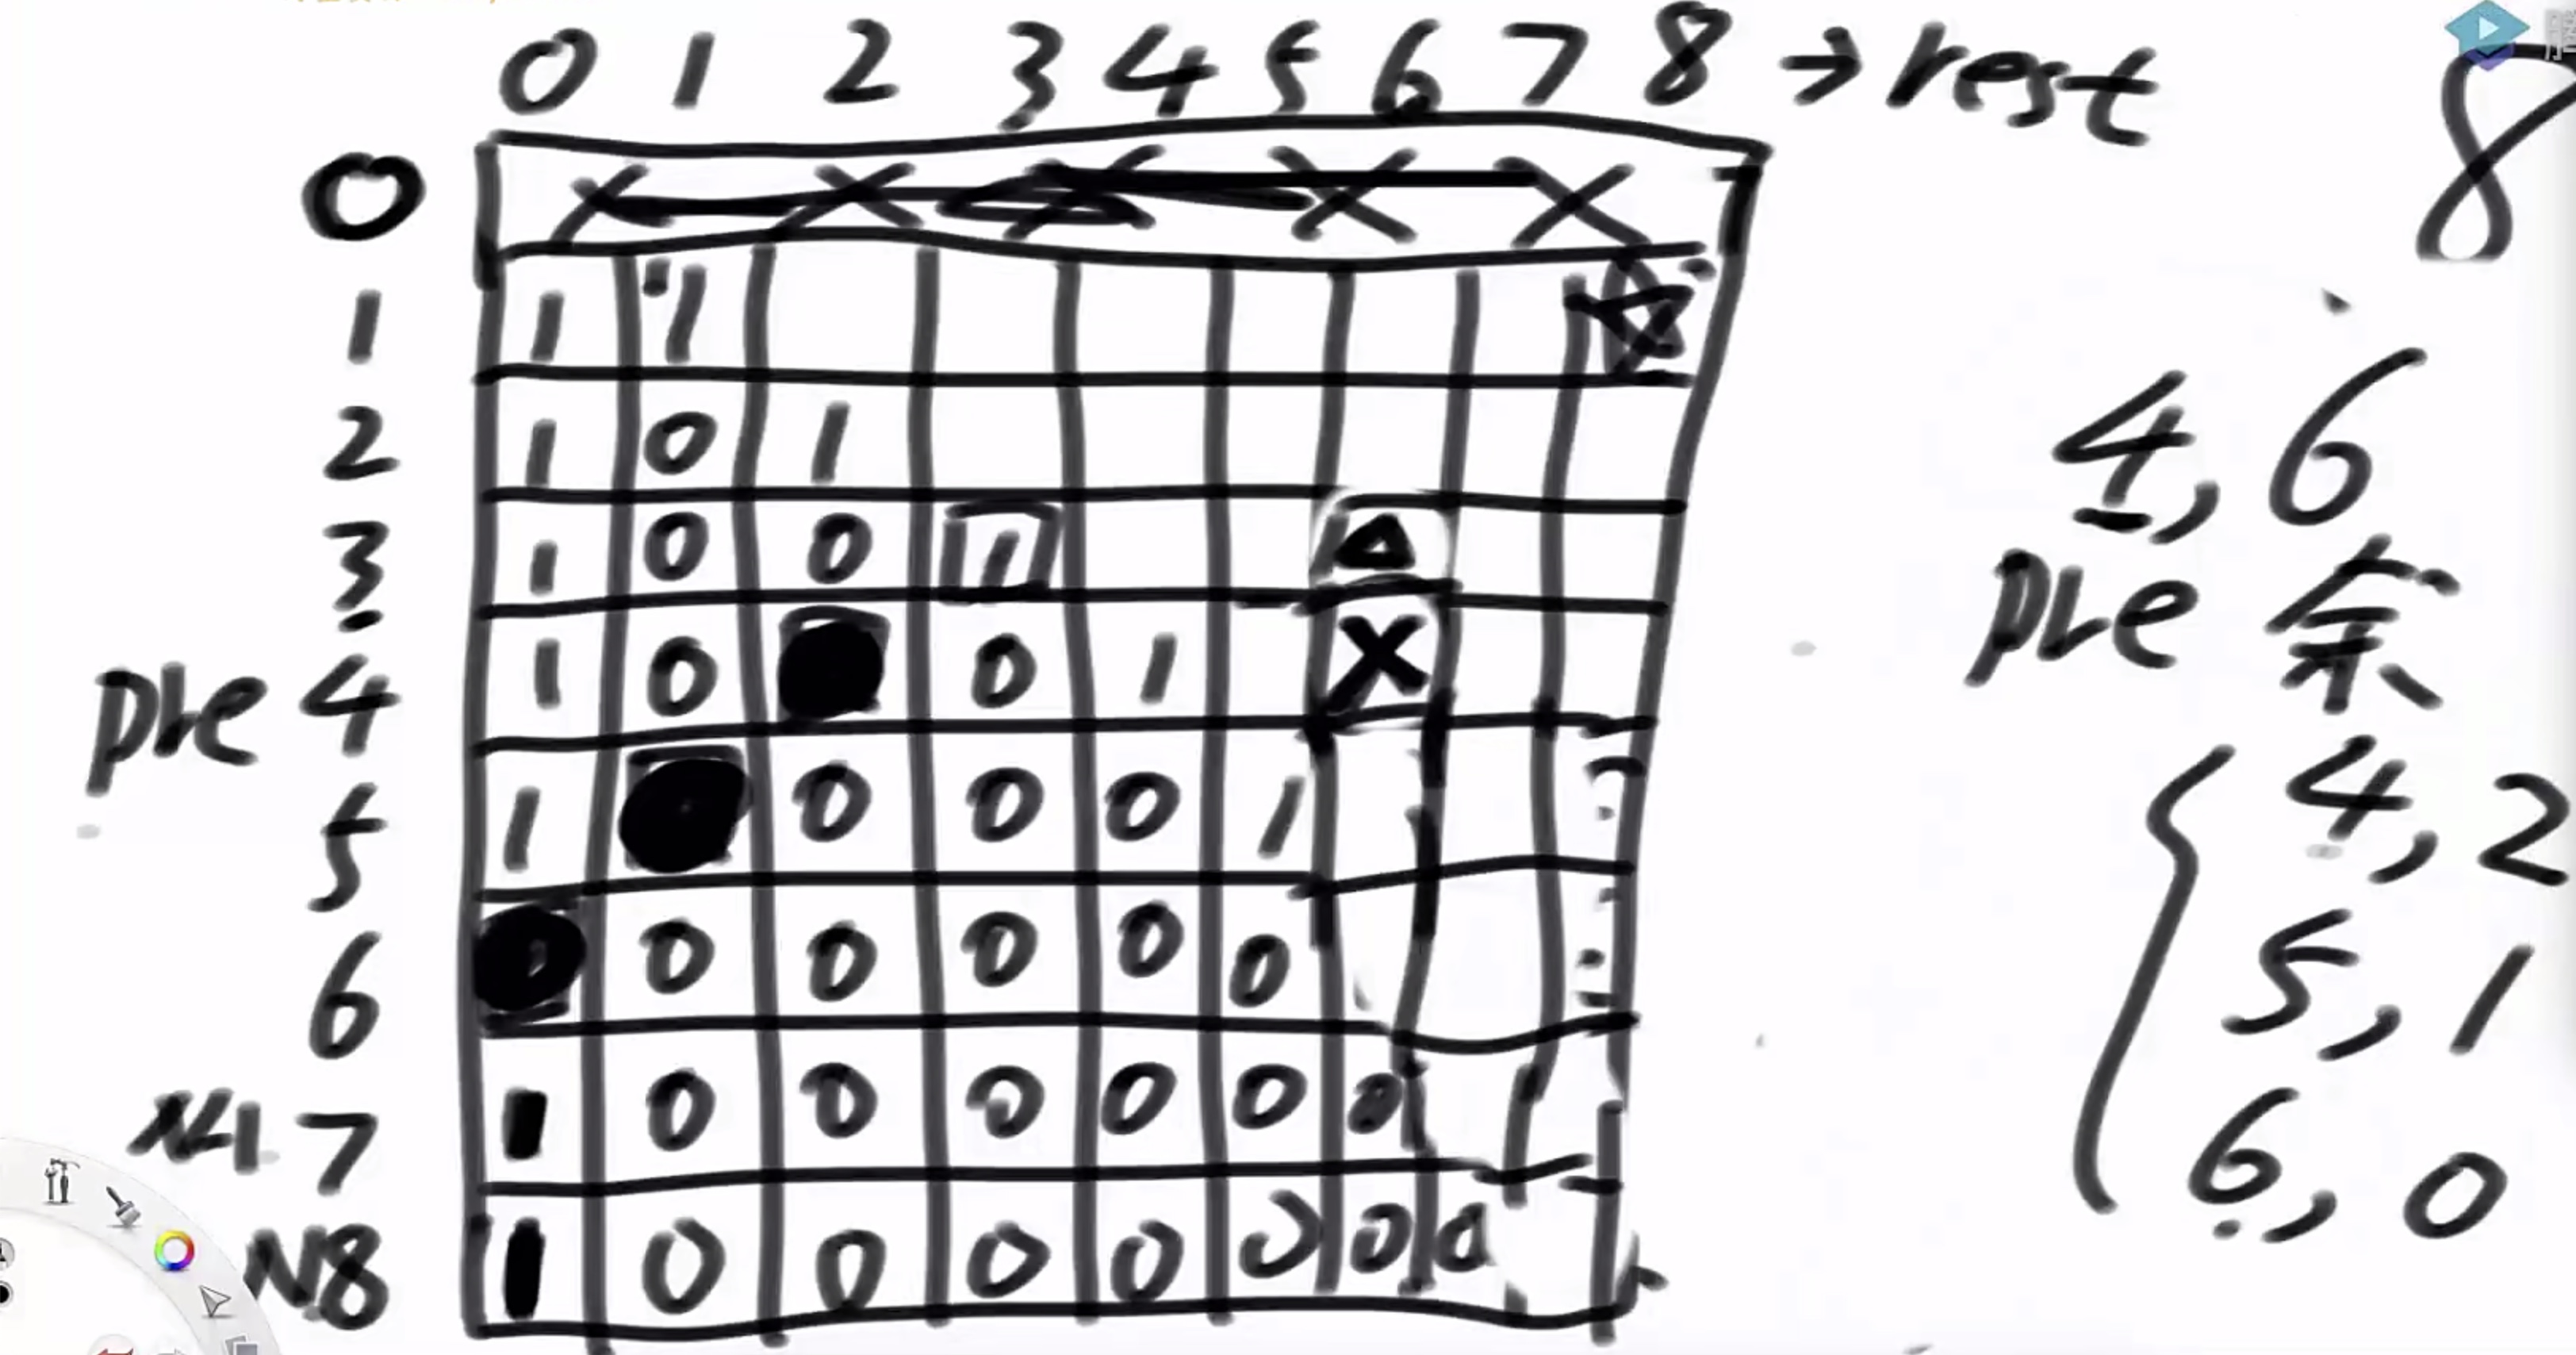 0 1 2 3 4 5 6 7 8 → rest
8
0 × × × × ×
1 1 1
2 1 0 1
3 1 0 0 1 △
pre 4 1 0 0 1 X
5 1 0 0 0 1
6 0 0 0 0 0
7 1 0 0 0 0 0 0
N8 1 0 0 0 0 0 0 0
4, 6
pre 余
4, 2
5, 1
6, 0